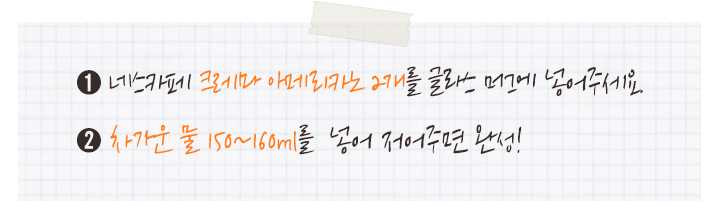 1 네스카페 크레마 아메리카노 2개를 글라스 머그에 넣어주세요.
2 차가운 물 150~160ml를 넣어 저어주면 완성!